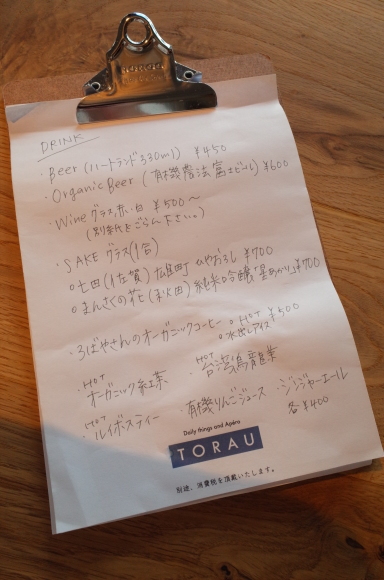 DRINK
・Beer (ハートランド 330ml) ¥450
・Organic Beer (有機農法 富士ビール) ¥600
・Wine グラス,赤,白 ¥500〜
(別紙をごらん下さい。)
・SAKE グラス(1合)
○七田(佐賀) ひやおろし ¥700
○まんさくの花(秋田) 純米吟醸 ¥700
・ろばやさんのオーガニックコーヒー ○HOT ○水出しアイス ¥500
・HOT オーガニック紅茶 ・HOT 台湾烏龍茶
・HOT ルイボスティー ・有機りんごジュース ・ジンジャーエール
各¥400
Daily things and Apéro
TORAU
別途、消費税を頂戴いたします。